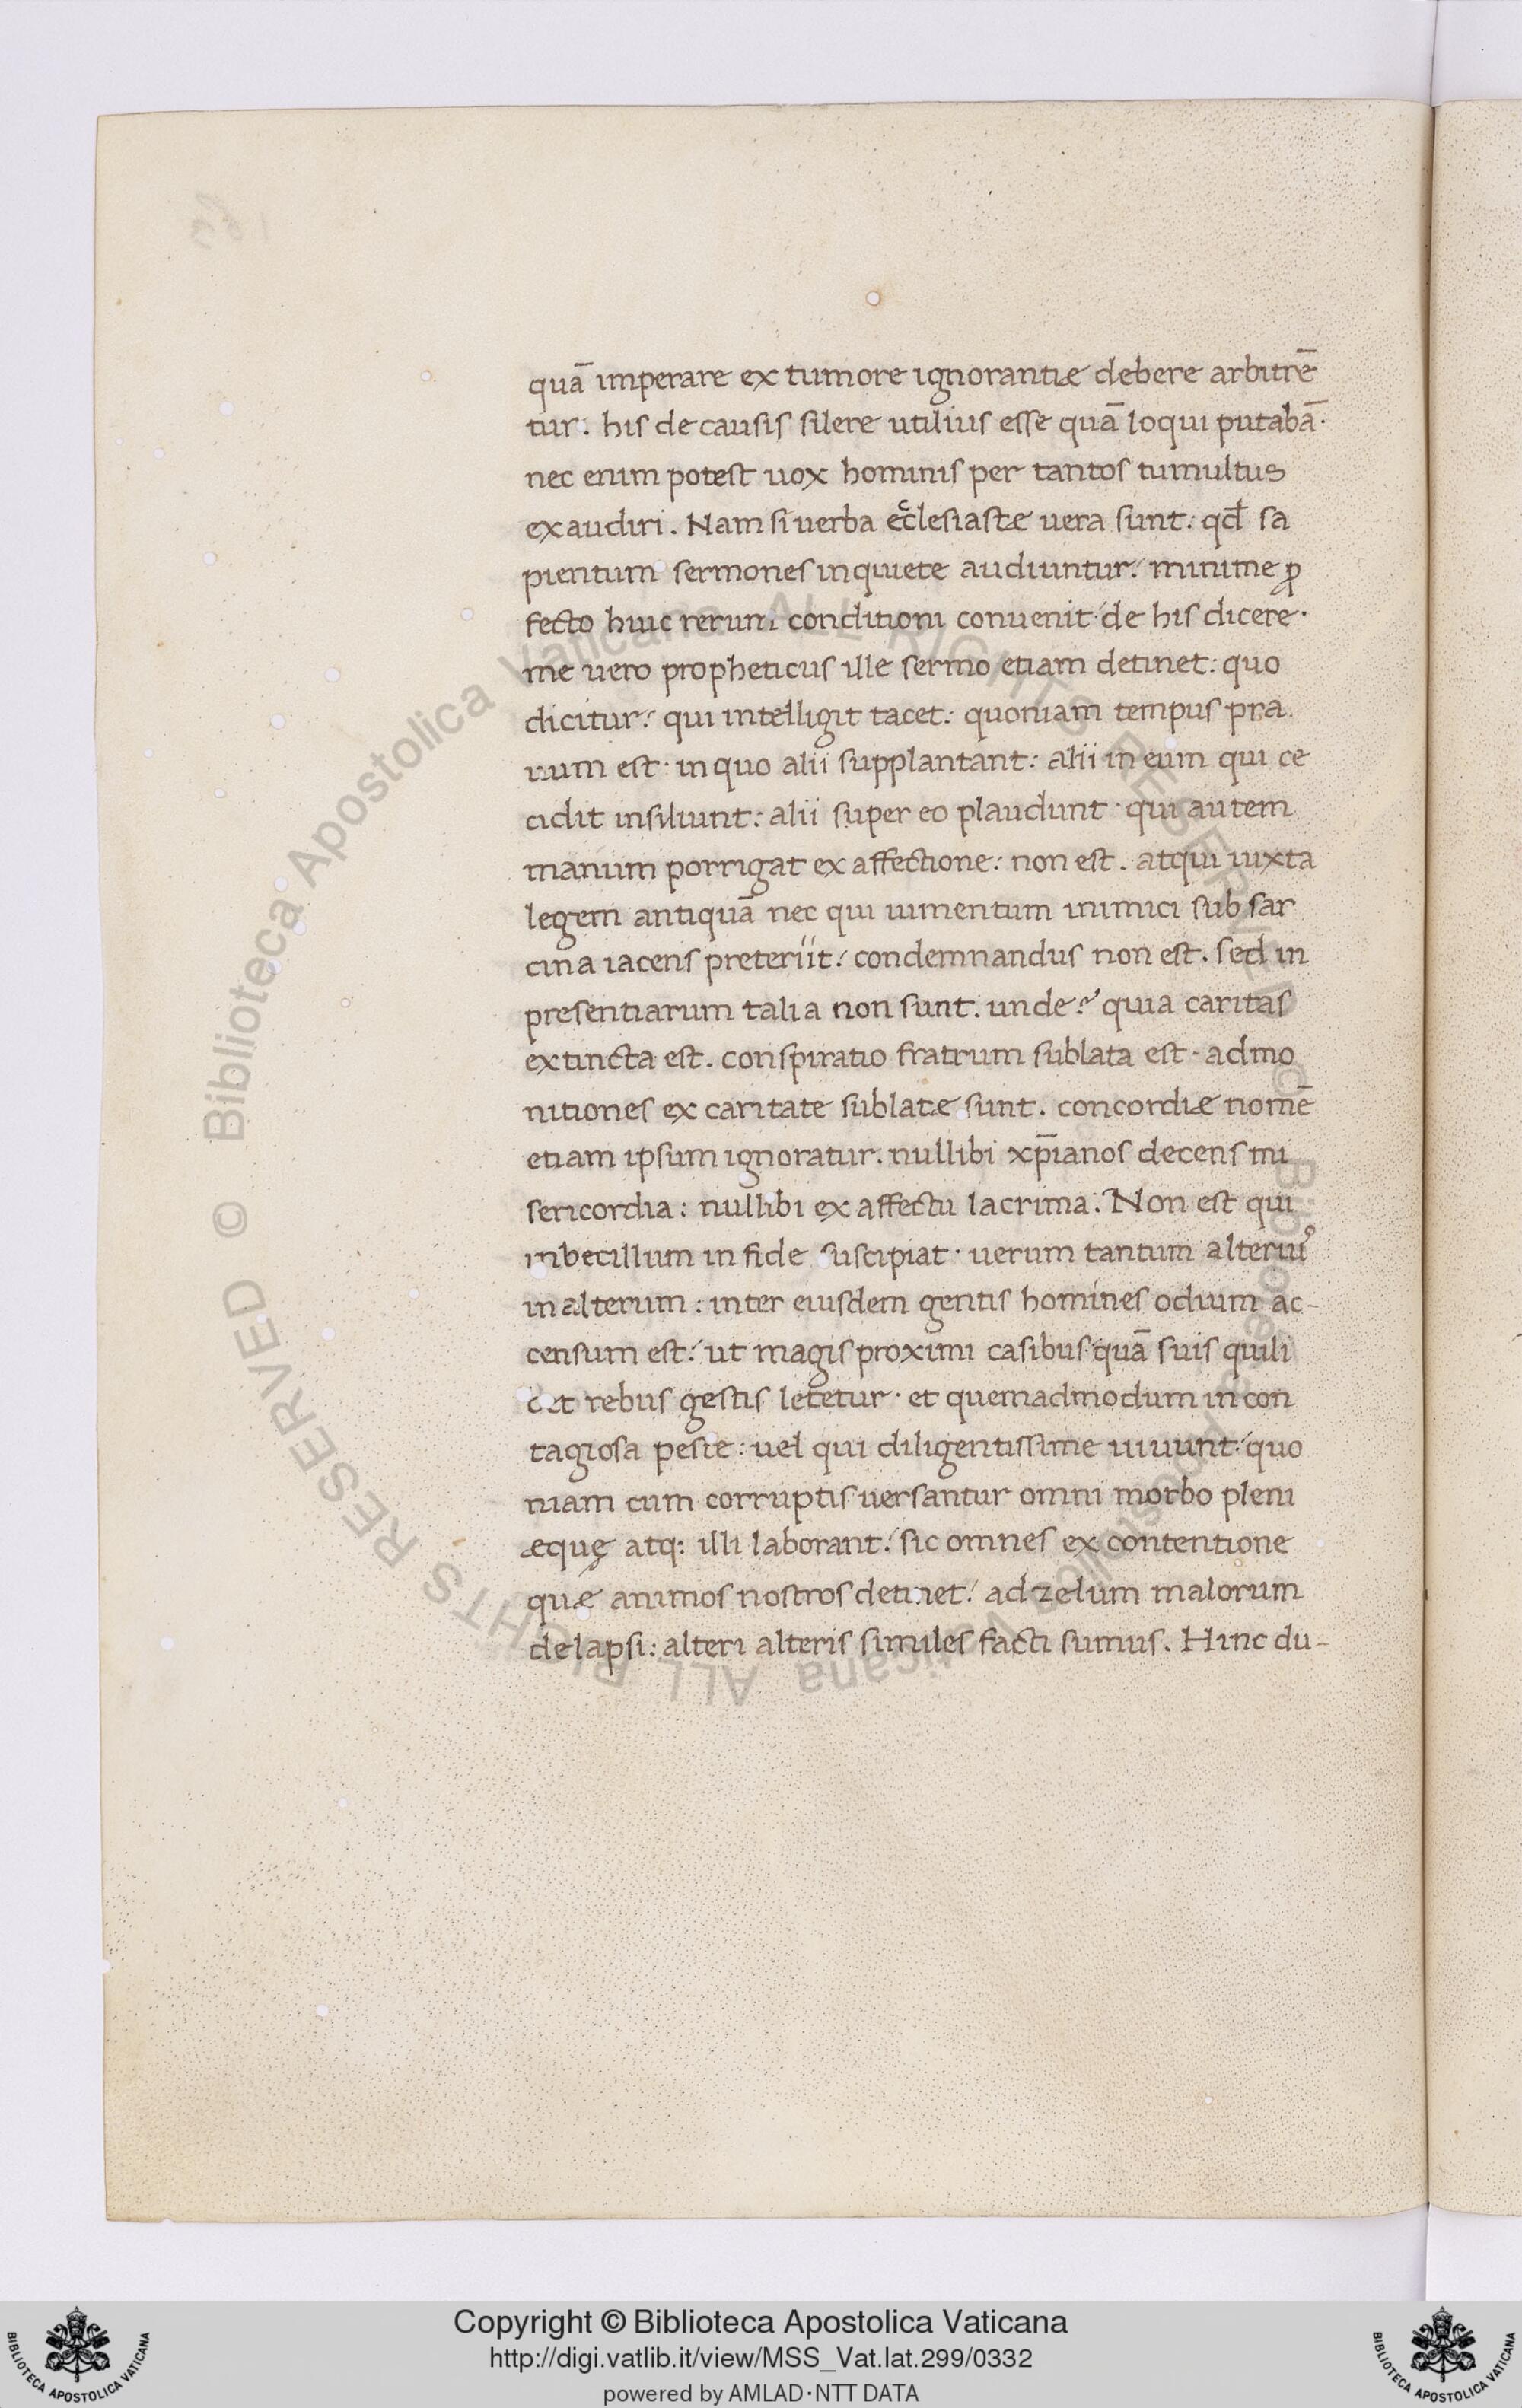 quā imperare ex tumore ignorantiæ debere arbitrē
tur. his de causis silere utilius esse quā loqui putabā·
nec enim potest uox hominis per tantos tumultus
exaudiri. Nam si uerba ecclesiastæ uera sunt: qđ sa
pientum sermones in quiete audiuntur: minime ꝓ
fecto huic rerum conditioni conuenit de his dicere·
me uero propheticus ille sermo etiam detinet: quo
dicitur: qui intelligit tacet: quoniam tempus pra
uum est· in quo alii supplantant: alii in eum qui ce
cidit insiliunt: alii super eo plaudunt· qui autem
manum porrigat ex affectione: non est. atqui iuxta
legem antiquā nec qui iumentum inimici sub sar
cina iacens preteriit: condemnandus non est. sed in
presentiarum talia non sunt. unde? quia caritas
extincta est. conspiratio fratrum sublata est· admo
nitiones ex caritate sublatæ sunt. concordiæ nomē
etiam ipsum ignoratur. nullibi xp̄ianos decens mi
sericordia: nullibi ex affectu lacrima. Non est qui
inbecillum in fide suscipiat· uerum tantum alteriuꝰ
in alterum: inter eiusdem gentis homines odium ac-
censum est: ut magis proximi casibus quā suis quili
bet rebus gestis letetur· et quemadmodum in con
tagiosa peste: uel qui diligentissime uiuunt: quo
niam cum corruptis uersantur omni morbo pleni
æquę atq: illi laborant: sic omnes ex contentione
quæ animos nostros detinet: ad zelum malorum
delapsi: alteri alteris similes facti sumus. Hinc du-
© Biblioteca Apostolica Vaticana ALL RIGHTS RESERVED © Biblioteca Apostolica Vaticana ALL RIGHTS RESERVED
Copyright © Biblioteca Apostolica Vaticana
http://digi.vatlib.it/view/MSS_Vat.lat.299/0332
powered by AMLAD·NTT DATA
BIBLIOTECA APOSTOLICA VATICANA
BIBLIOTECA APOSTOLICA VATICANA